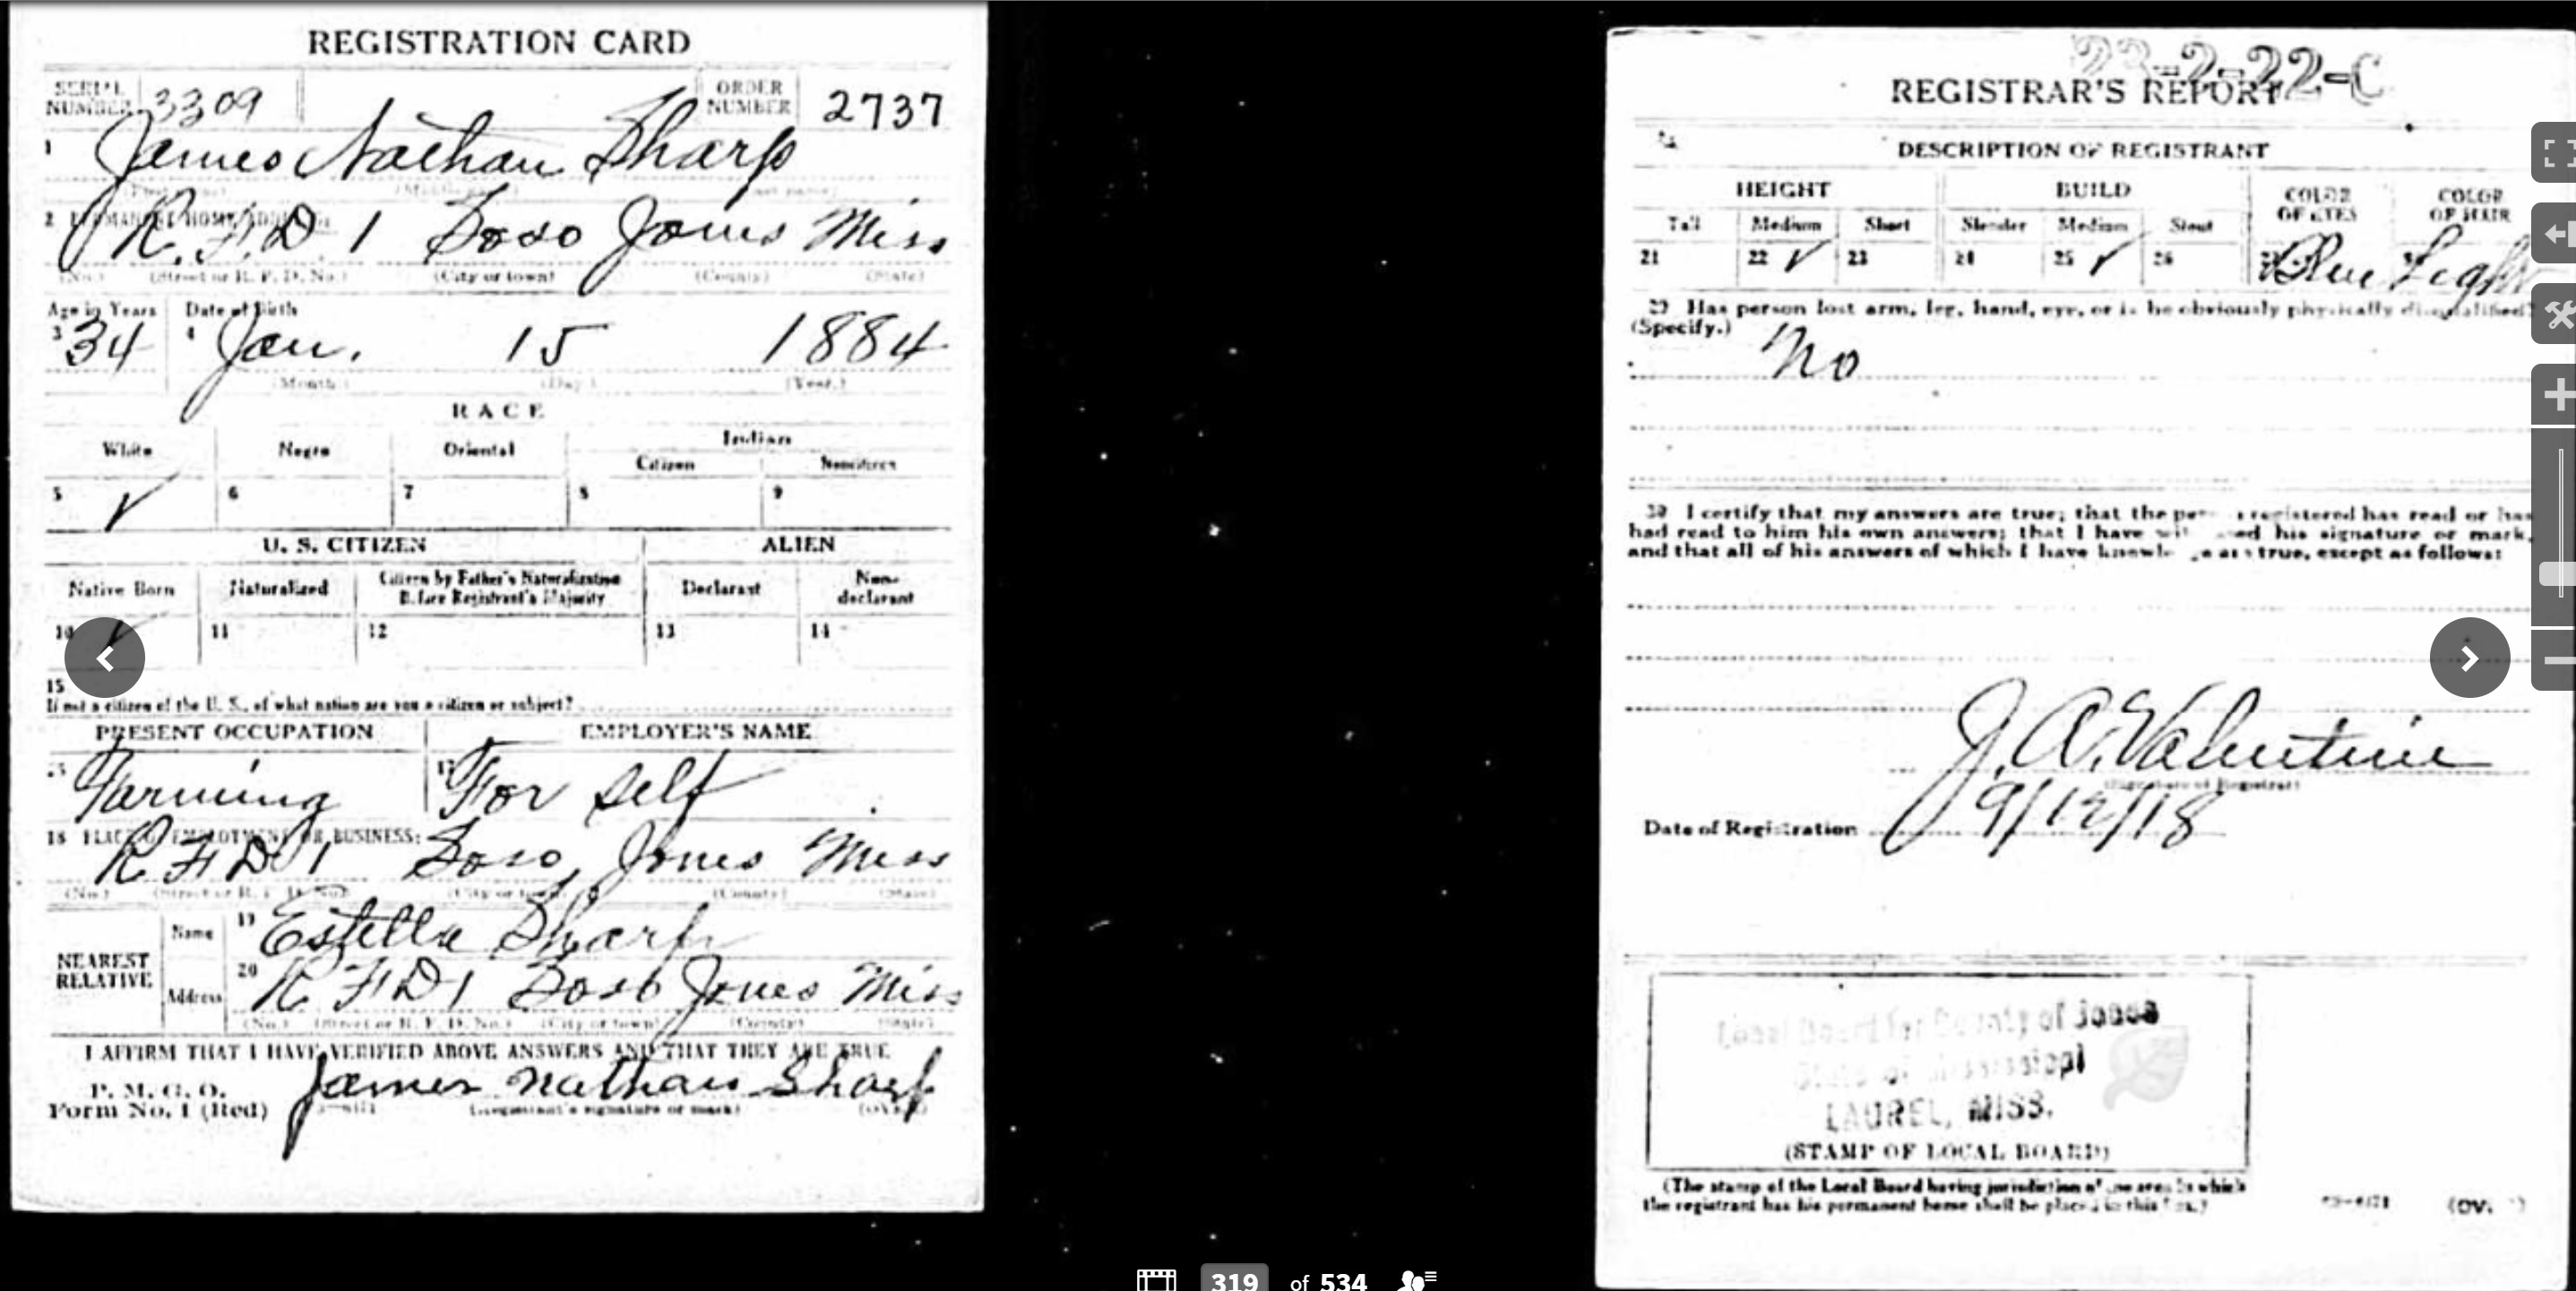 REGISTRATION CARD
SERIAL NUMBER 3309 ORDER NUMBER 2737
1 James Nathan Sharp
2 PERMANENT HOME ADDRESS:
R. F. D 1 Soso Jones Miss
(No.) (Street or R. F. D. No.) (City or town) (County) (State)
Age in Years Date of Birth
3 34 4 Jan. 15 1884
(Month.) (Day.) (Year.)
RACE
White Negro Oriental Indian
Citizen Noncitizen
5 ✓ 6 7 8 9
U. S. CITIZEN ALIEN
Native Born Naturalized Citizen by Father's Naturalization Before Registrant's Majority Declarant Non-declarant
10 ✓ 11 12 13 14
15
If not a citizen of the U. S., of what nation are you a citizen or subject?
PRESENT OCCUPATION EMPLOYER'S NAME
Farming 17 For self
18 PLACE OF EMPLOYMENT OR BUSINESS:
R F D 1 Soso, Jones Miss
(No.) (Street or R. F. D. No.) (City or town) (County) (State)
NEAREST RELATIVE
Name 19 Estella Sharp
Address 20 R F D 1 Soso Jones Miss
(No.) (Street or R. F. D. No.) (City or town) (County) (State)
I AFFIRM THAT I HAVE VERIFIED ABOVE ANSWERS AND THAT THEY ARE TRUE
P. M. G. O.
Form No. 1 (Red) James Nathan Sharp
(Registrant's signature or mark) (OVER)
23-2-22-C
REGISTRAR'S REPORT
DESCRIPTION OF REGISTRANT
HEIGHT BUILD COLOR OF EYES COLOR OF HAIR
Tall Medium Short Slender Medium Stout
21 22 ✓ 23 24 25 ✓ 26 Blue Light
29 Has person lost arm, leg, hand, eye, or is he obviously physically disqualified?
(Specify.)
No
30 I certify that my answers are true; that the person registered has read or has
had read to him his own answers; that I have witnessed his signature or mark,
and that all of his answers of which I have knowledge are true, except as follows:
J. A. Valentine
(Signature of Registrar)
Date of Registration 9/12/18
Local Board for County of Jones
State of Mississippi
LAUREL, MISS.
(STAMP OF LOCAL BOARD)
(The stamp of the Local Board having jurisdiction of the area in which
the registrant has his permanent home shall be placed in this box.)
319 of 534